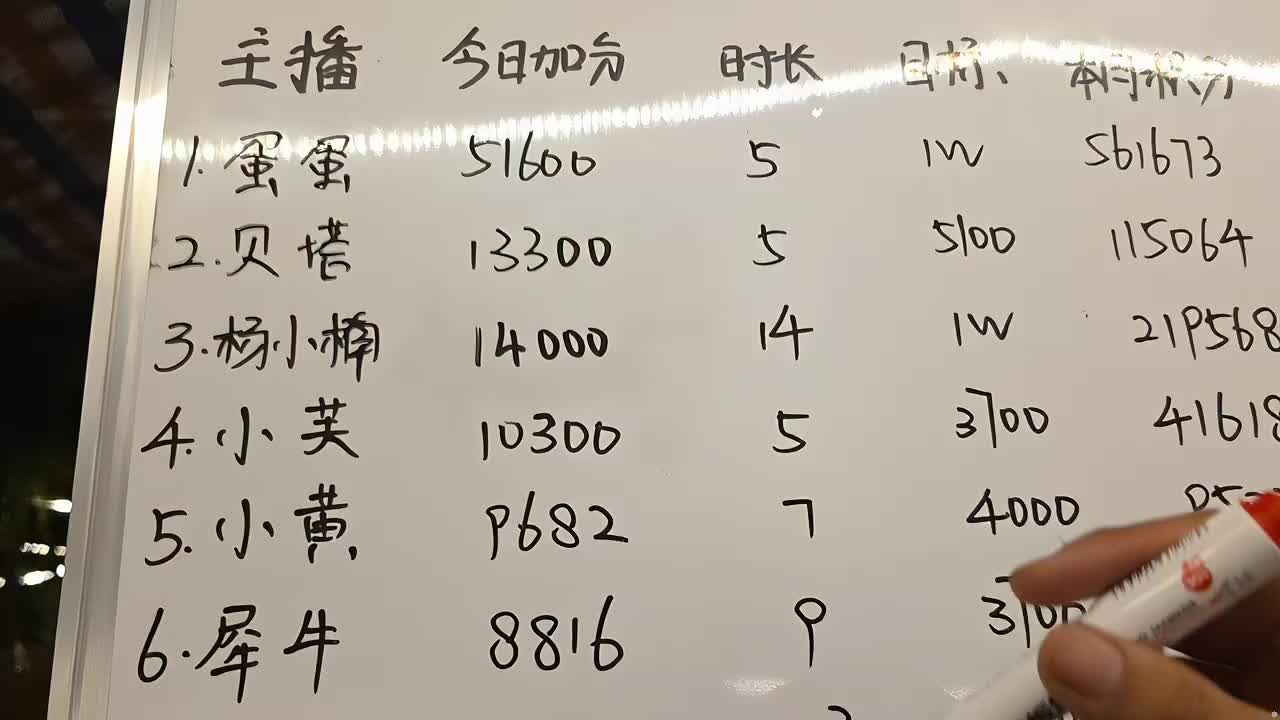 主播 今日加分 时长 目标、 本月积分
1. 蛋蛋 51600 5 1W 561673
2. 贝塔 13300 5 5100 115064
3. 杨小楠 14000 14 1W 219568
4. 小芙 10300 5 3700 41618
5. 小黄 9682 7 4000
6. 犀牛 8816 9 3700